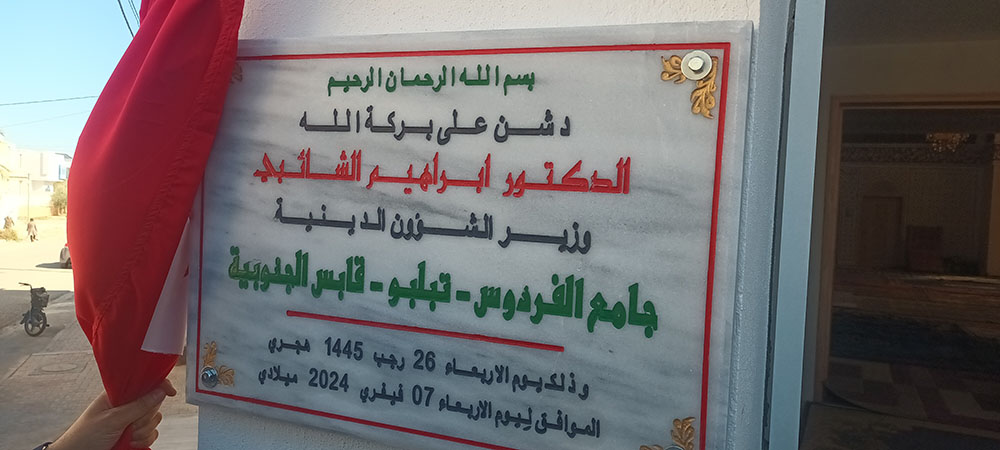 بسم الله الرحمان الرحيم
دشن على بركة الله
الدكتور ابراهيم الشائبي
وزير الشؤون الدينية
جامع الفردوس - تبلبو - قابس الجنوبية
وذلك يوم الاربعاء 26 رجب 1445 هجري
الموافق ليوم الاربعاء 07 فيفري 2024 ميلادي